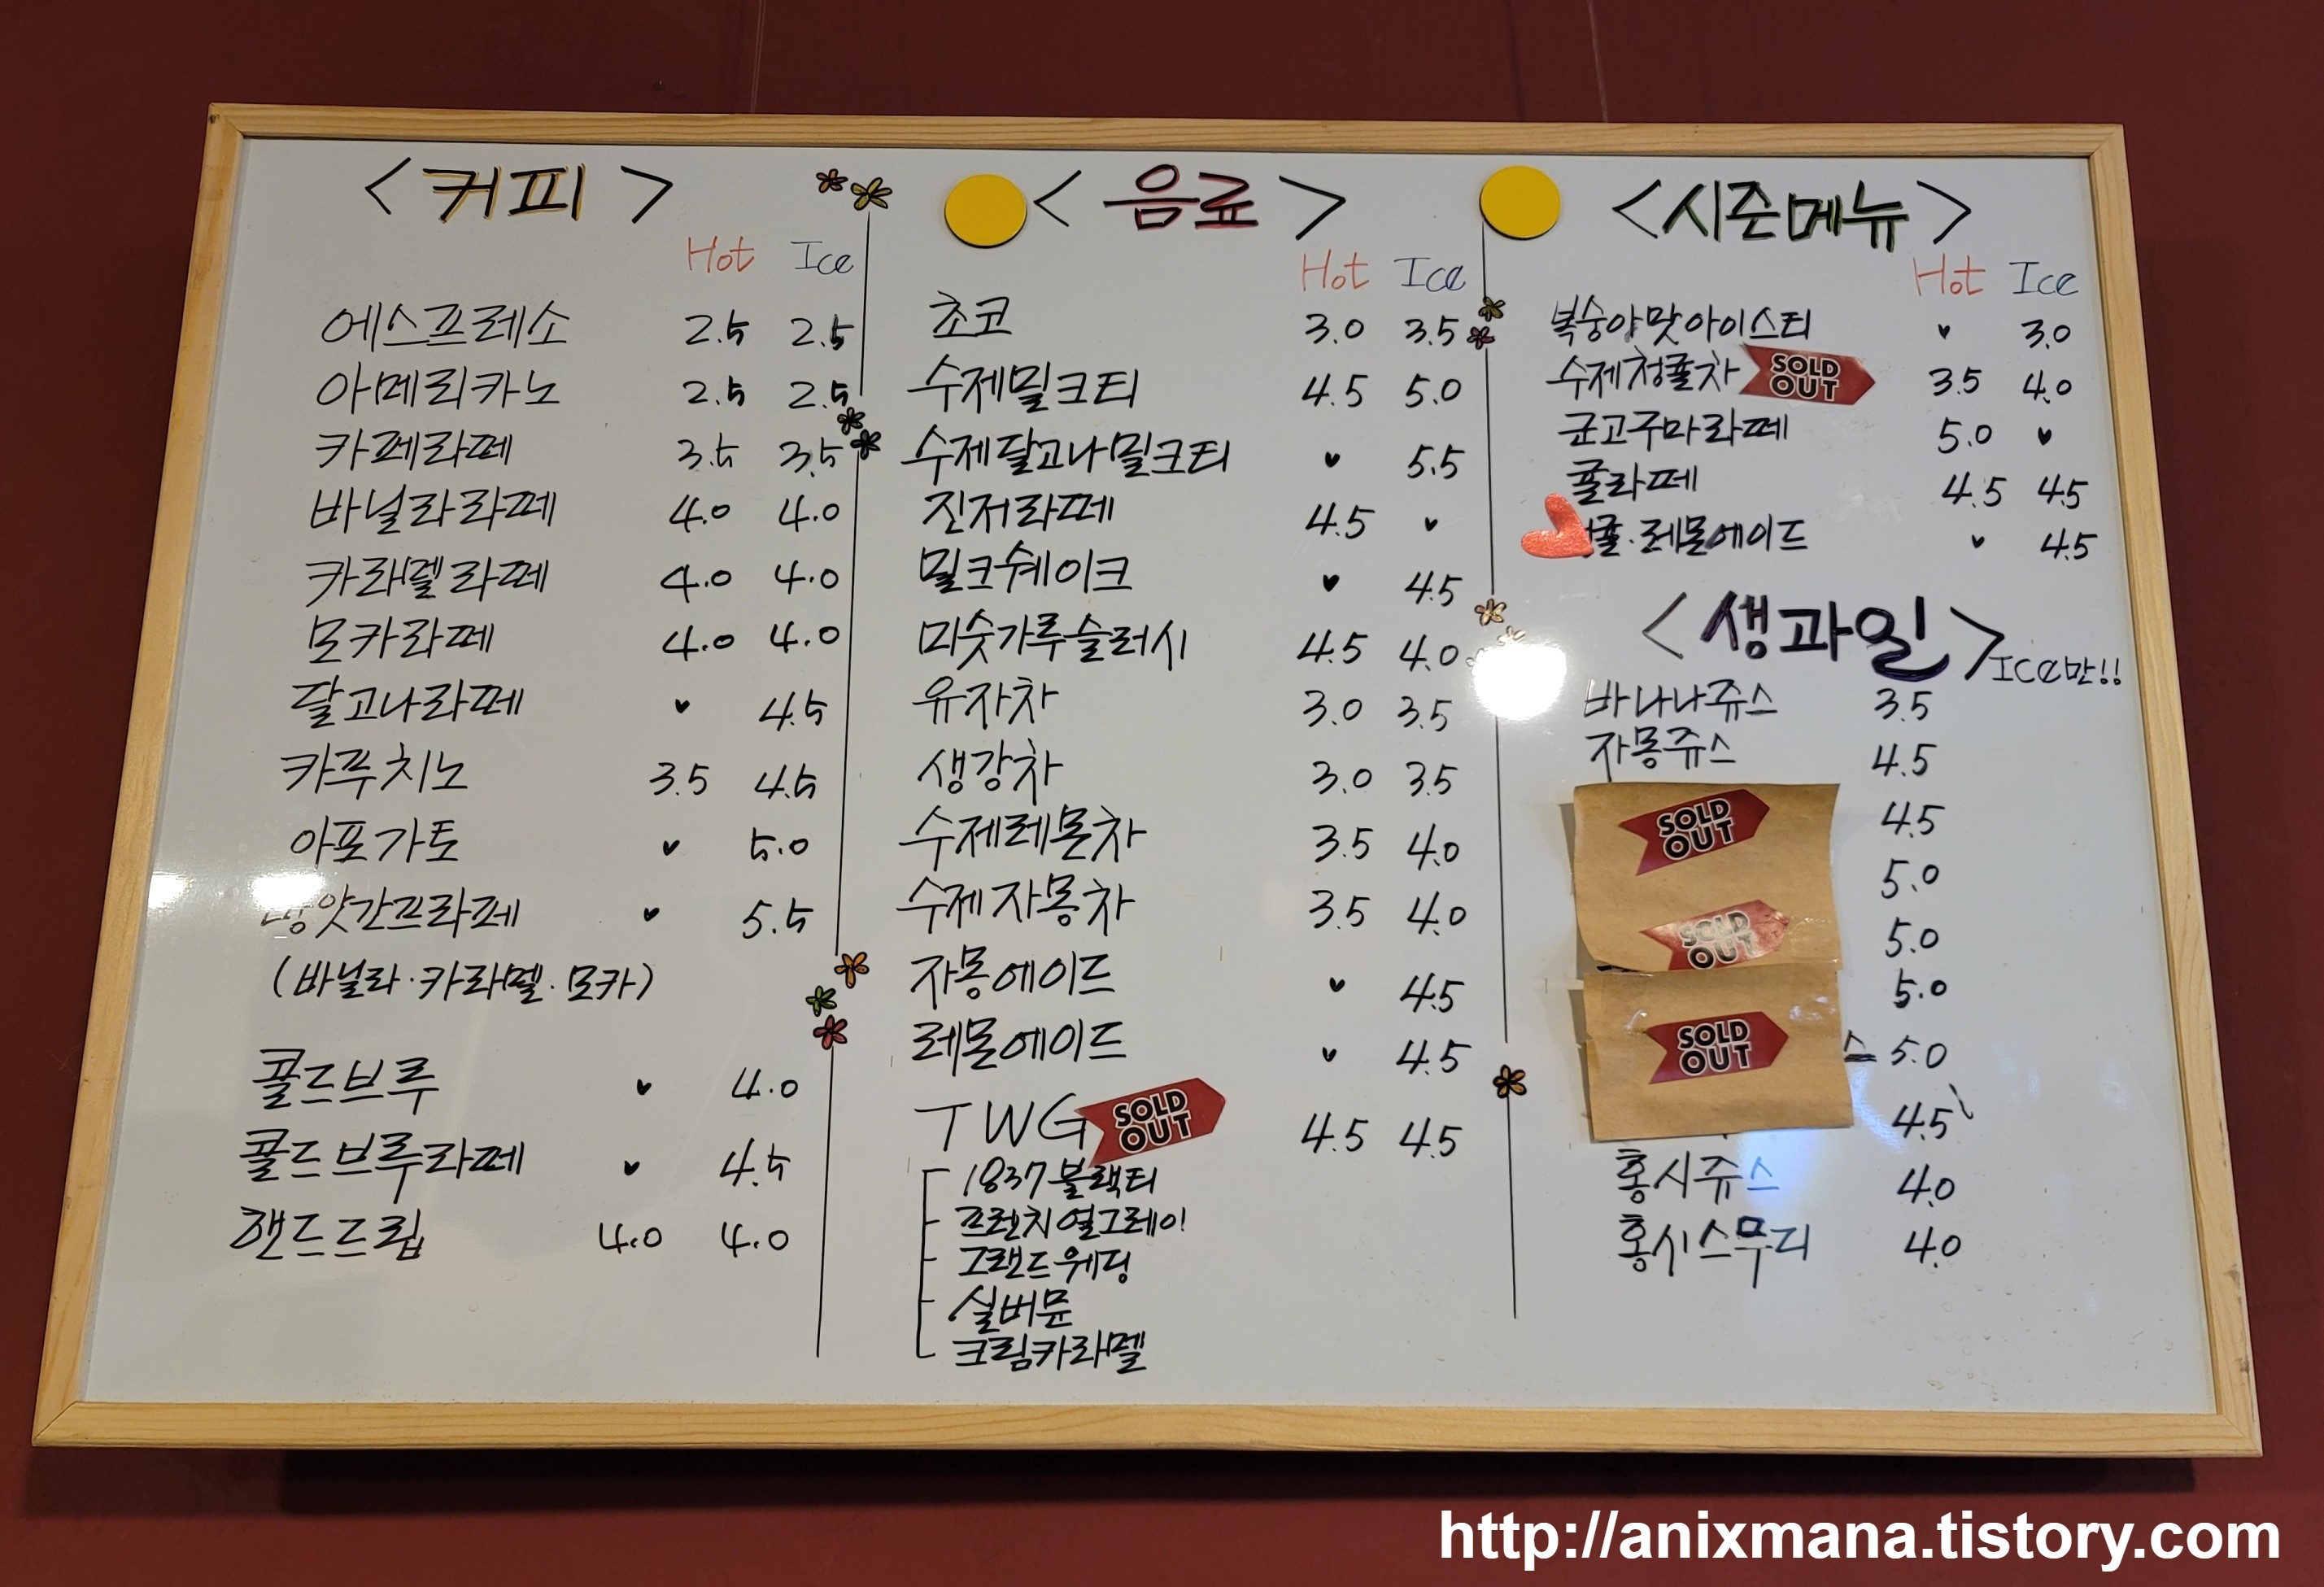 <커피>
Hot Ice
에스프레소 2.5 2.5
아메리카노 2.5 2.5
카페라떼 3.5 3.5
바닐라라떼 4.0 4.0
카라멜라떼 4.0 4.0
모카라떼 4.0 4.0
달고나라떼 4.5
카푸치노 3.5 4.5
아포가토 5.0
5.5
(바닐라·카라멜·모카)
콜드브루 4.0
콜드브루라떼 4.5
핸드드립 4.0 4.0
<음료>
Hot Ice
초코 3.0 3.5
수제밀크티 4.5 5.0
수제달고나밀크티 5.5
진저라떼 4.5
밀크쉐이크 4.5
미숫가루슬러시 4.5 4.0
유자차 3.0 3.5
생강차 3.0 3.5
수제레몬차 3.5 4.0
수제자몽차 3.5 4.0
자몽에이드 4.5
레몬에이드 4.5
TWG SOLD OUT 4.5 4.5
1837블랙티
프렌치얼그레이
그랜드웨딩
실버문
크림카라멜
<시즌메뉴>
Hot Ice
복숭아맛아이스티 3.0
수제청귤차 SOLD OUT 3.5 4.0
군고구마라떼 5.0
귤라떼 4.5 4.5
귤·레몬에이드 4.5
<생과일>
Ice만!!
바나나쥬스 3.5
자몽쥬스 4.5
SOLD OUT 4.5
5.0
SOLD OUT 5.0
5.0
SOLD OUT 스 5.0
4.5
홍시쥬스 4.0
홍시스무디 4.0
http://anixmana.tistory.com